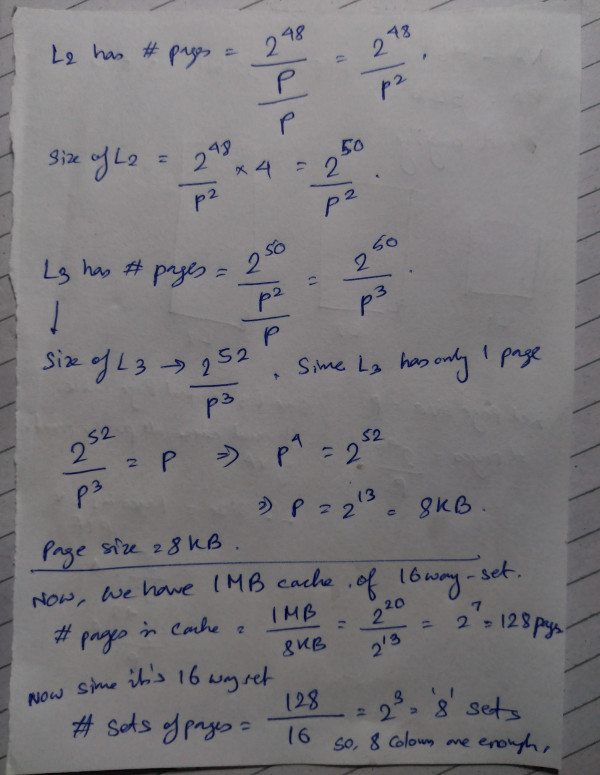 L2 has # pages = 2^48 / P / P = 2^48 / P^2 .
Size of L2 = 2^48 / P^2 × 4 = 2^50 / P^2 .
L3 has # pages = 2^50 / P^2 / P = 2^60 / P^3 .
↓
Size of L3 → 2^52 / P^3 . Sinie L3 has only 1 page
2^52 / P^3 = P ⇒ P^4 = 2^52
⇒ P = 2^13 = 8KB .
Page size = 8KB .
Now, we have 1MB cache . of 16 way-set .
# pages in cache = 1MB / 8KB = 2^20 / 2^13 = 2^7 = 128 pages
Now since it's 16 way set
# sets of pages = 128 / 16 = 2^3 = '8' sets
so, 8 colours are enough,